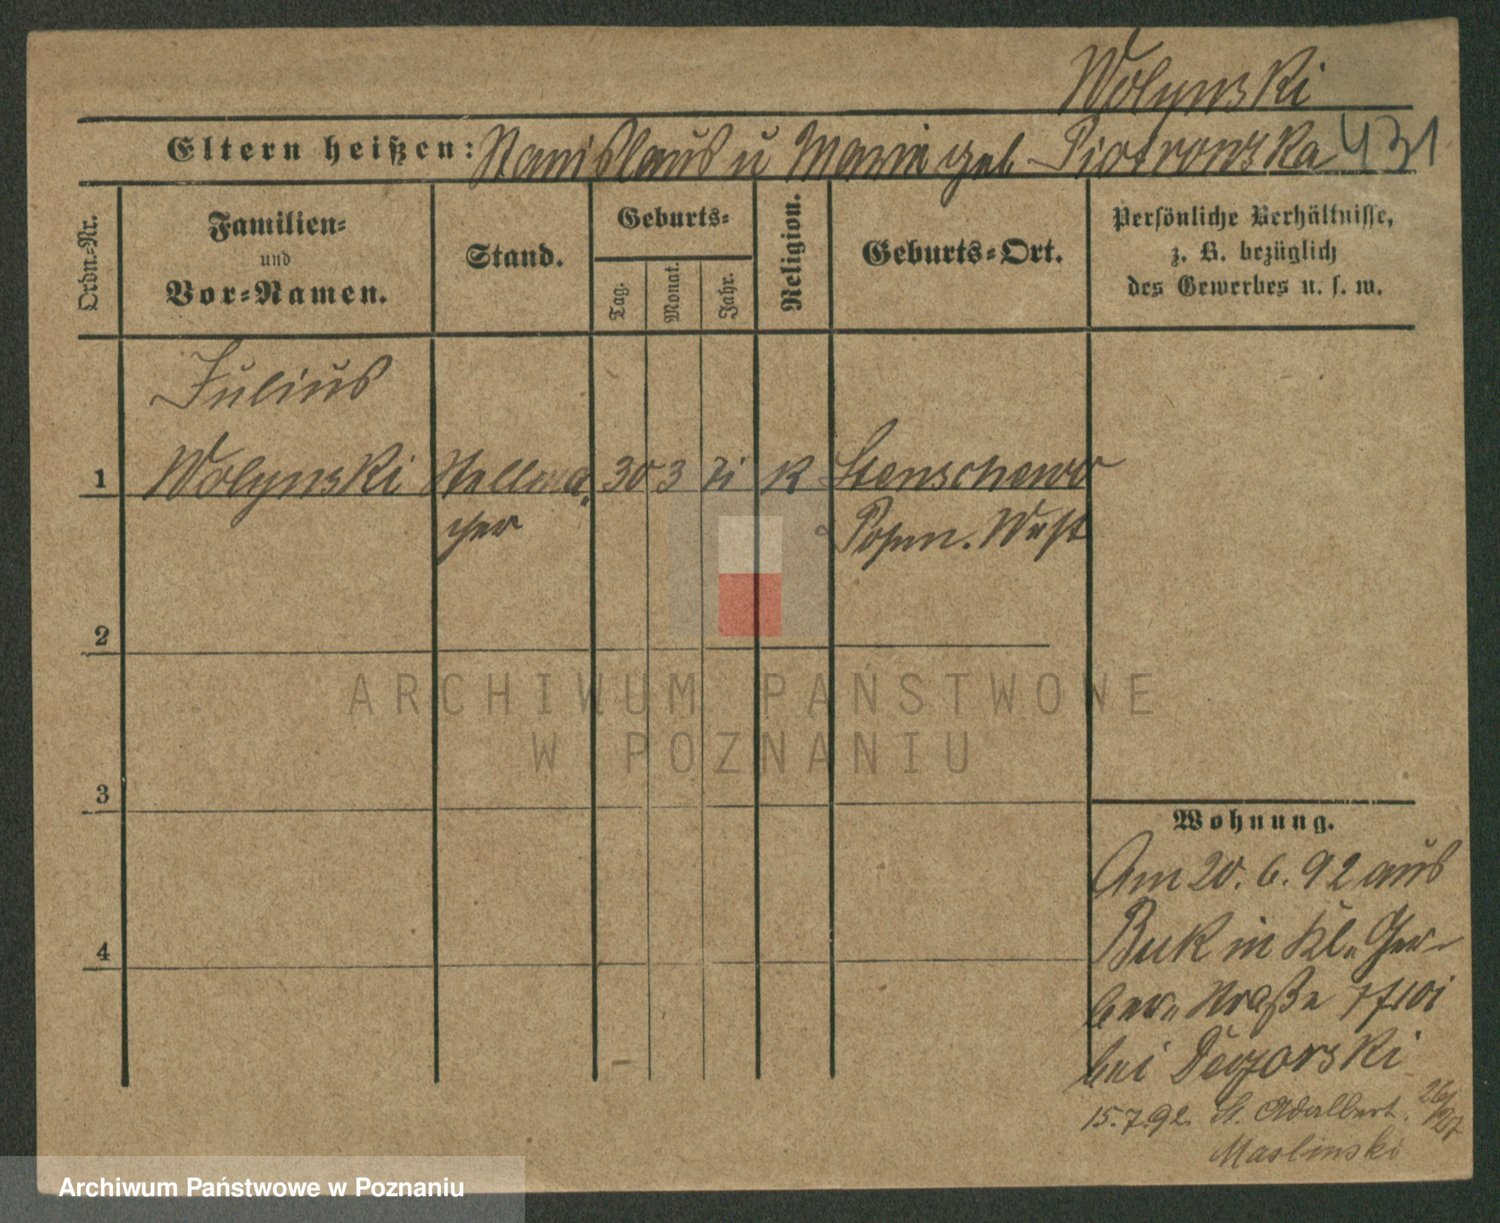 Wolynski
Eltern heißen: Stanislaus u Marie geb Piotrowska 431
Ordn.-Nr.
Familien-
und
Vor-Namen.
Stand.
Geburts-
Tag.
Monat.
Jahr.
Religion.
Geburts-Ort.
Persönliche Verhältnisse,
z. B. bezüglich
des Gewerbes u. s. w.
Julius
1 Wolynski Stellma„ 30 3 71 K Stenschewo
cher Posen. West
2
ARCHIWUM PAŃSTWOWE
W POZNANIU
3
Wohnung.
Am 20. 6. 92 aus
Buk in Kl. Ger-
ber„ Straße
bei
4
15.7.92. St. Adalbert. 26/27
Maslinski
Archiwum Państwowe w Poznaniu